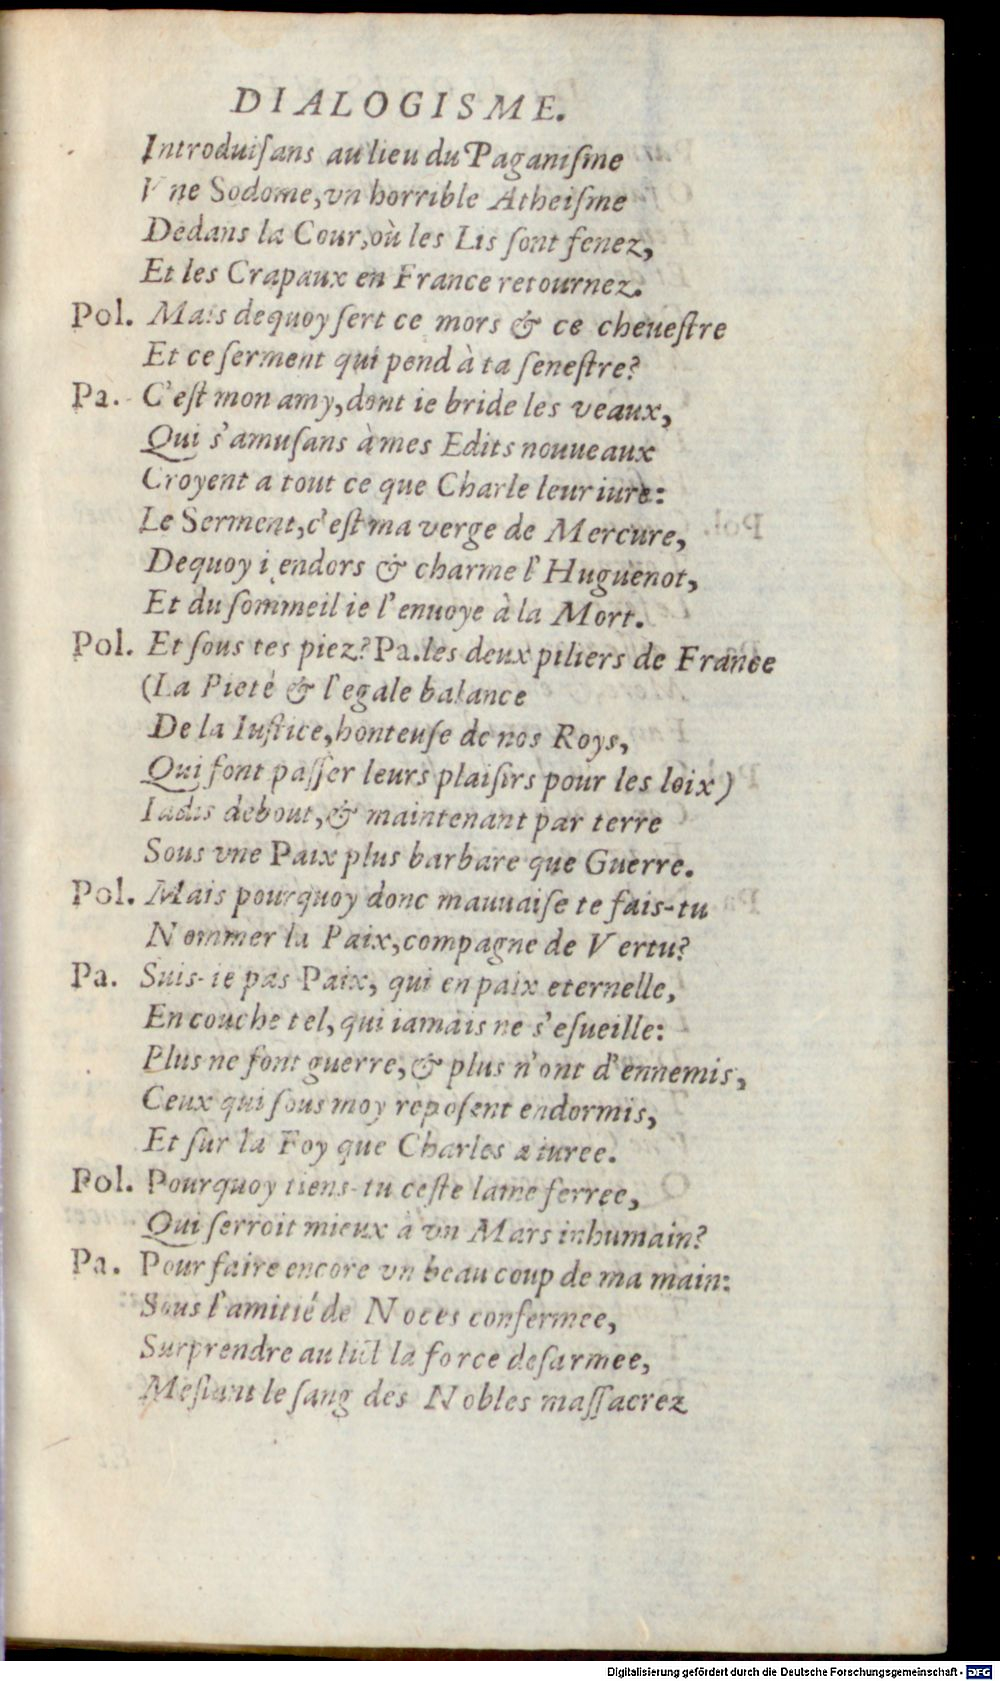 DIALOGISME.
Introduiſans au lieu du Paganiſme
Vne Sodome, vn horrible Atheiſme
Dedans la Cour, où les Lis ſont fenez,
Et les Crapaux en France retournez.
Pol. Mais dequoy ſert ce mors & ce cheueſtre
Et ce ſerment qui pend à ta ſeneſtre?
Pa. C'eſt mon amy, dont ie bride les veaux,
Qui s'amuſans à mes Edits nouueaux
Croyent a tout ce que Charle leur iure:
Le Serment, c'eſt ma verge de Mercure,
Dequoy i'endors & charme l'Huguenot,
Et du ſommeil ie l'enuoye à la Mort.
Pol. Et ſous tes piez? Pa. les deux piliers de France
(La Pieté & l'egale balance
De la Iuſtice, honteuſe de nos Roys,
Qui font paſſer leurs plaiſirs pour les loix)
Iadis debout, & maintenant par terre
Sous vne Paix plus barbare que Guerre.
Pol. Mais pourquoy donc mauuaiſe te fais-tu
Nommer la Paix, compagne de Vertu?
Pa. Suis-ie pas Paix, qui en paix eternelle,
En couche tel, qui iamais ne s'eſueille:
Plus ne font guerre, & plus n'ont d'ennemis,
Ceux qui ſous moy repoſent endormis,
Et ſur la Foy que Charles a iuree.
Pol. Pourquoy tiens-tu ceſte lame ferree,
Qui ſerroit mieux à vn Mars inhumain?
Pa. Pour faire encore vn beau coup de ma main:
Sous l'amitié de Noces confermee,
Surprendre au lict la force deſarmee,
Meſlant le ſang des Nobles maſſacrez
Digitalisierung gefördert durch die Deutsche Forschungsgemeinschaft - DFG